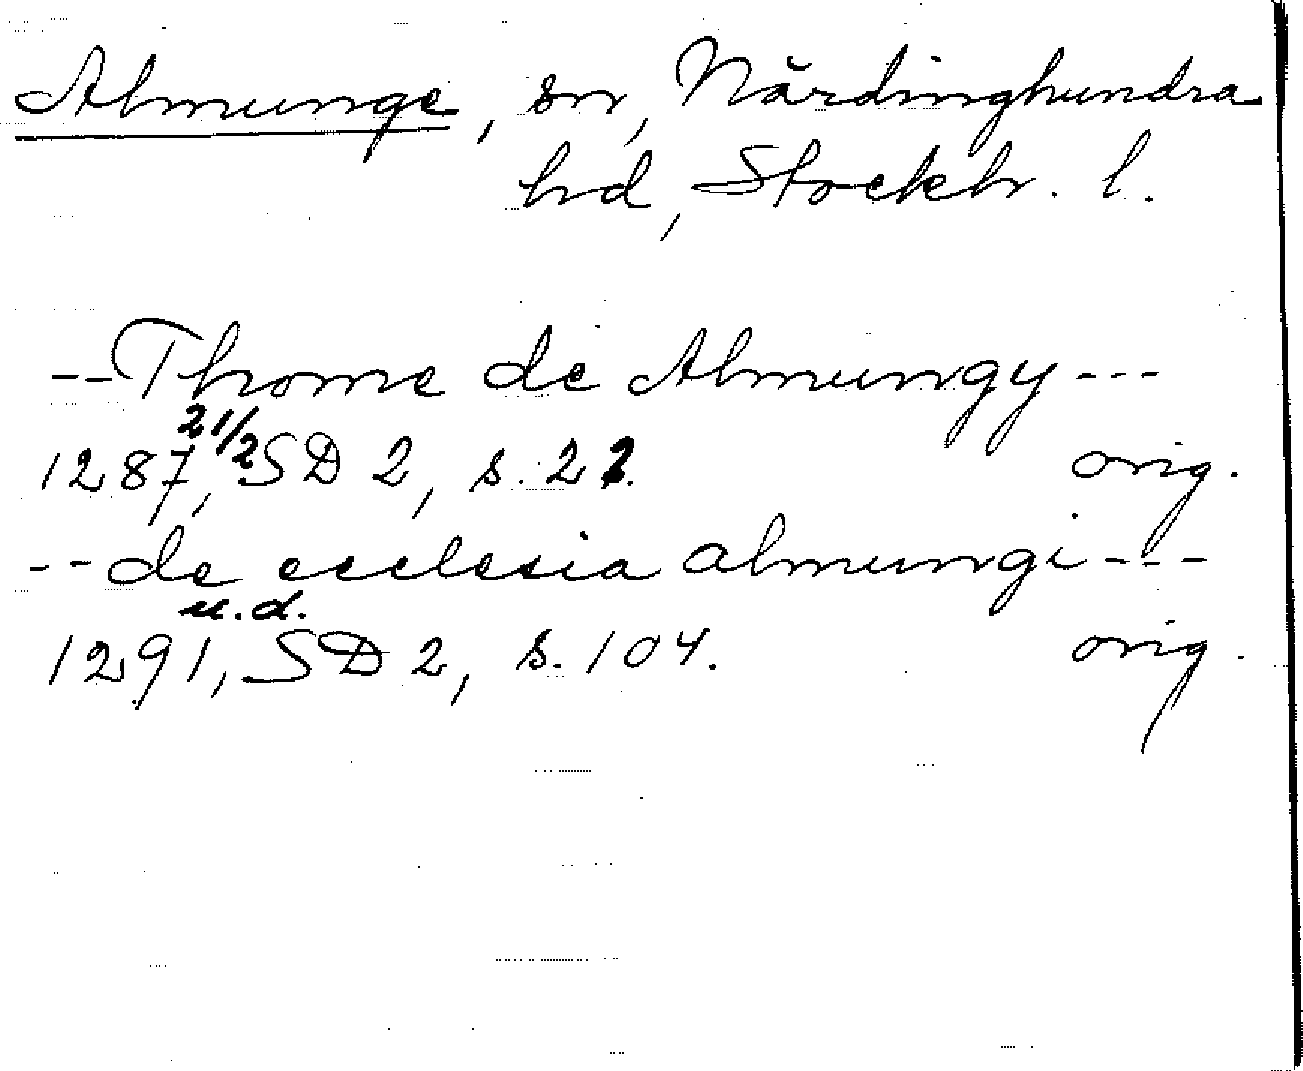 Almunge, sn, Närdinghundra
hd, Stockh. l.
-- Thome de Almungy ---
21/2
1287, SD 2, s. 22. orig.
-- de ecclesia almungi ---
u.d.
1291, SD 2, s. 104. orig.